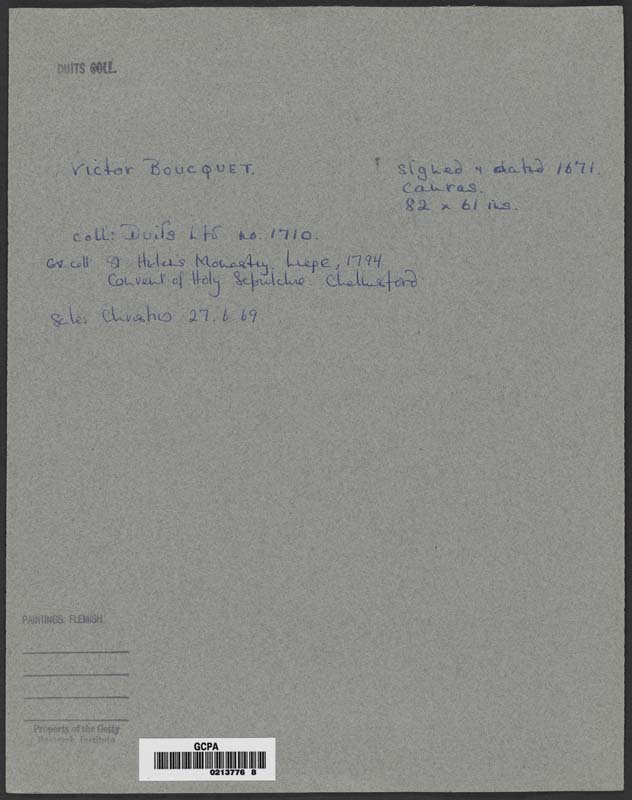 DUITS COLL.
Victor BOUCQUET.
signed & dated 1671.
canvas.
82 x 61 ins.
coll: Duits Ltd no. 1710.
ex coll St Helens Monastry, Liege, 1794
Convent of Holy Sepulchre Chelmsford
Sale: Christies 27.6.69
PAINTINGS: FLEMISH
Property of the Getty
Research Institute
GCPA
0213776 8